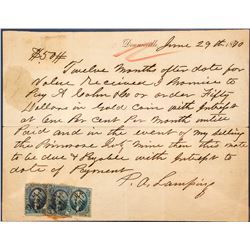 $50 4/4
Downieville June 29th 1870
Twelve Months after date for
Value Received I Promise to
Pay A Cohn & Co or order Fifty
Dollars in Gold Coin with Interest
at One Per Cent Per Month untill
Paid and in the event of my selling
the Primrose mine then this note
to be due & Payable with Interest to
date of Payment
P. A. Lamping